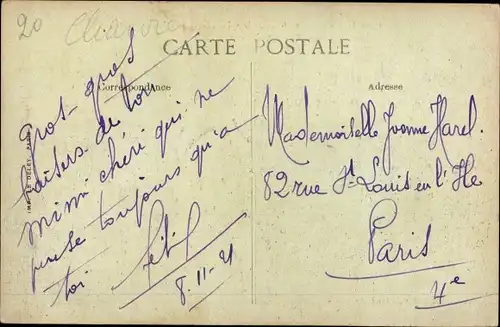 20
CARTE POSTALE
Correspondance
Adresse
Grot gros
baisers de ton
mimi chéri qui ne
pense toujours qu'a
toi.
8.11-21
Mademoiselle Yvonne Harel.
82 rue St Louis en l'Ile
Paris
4e